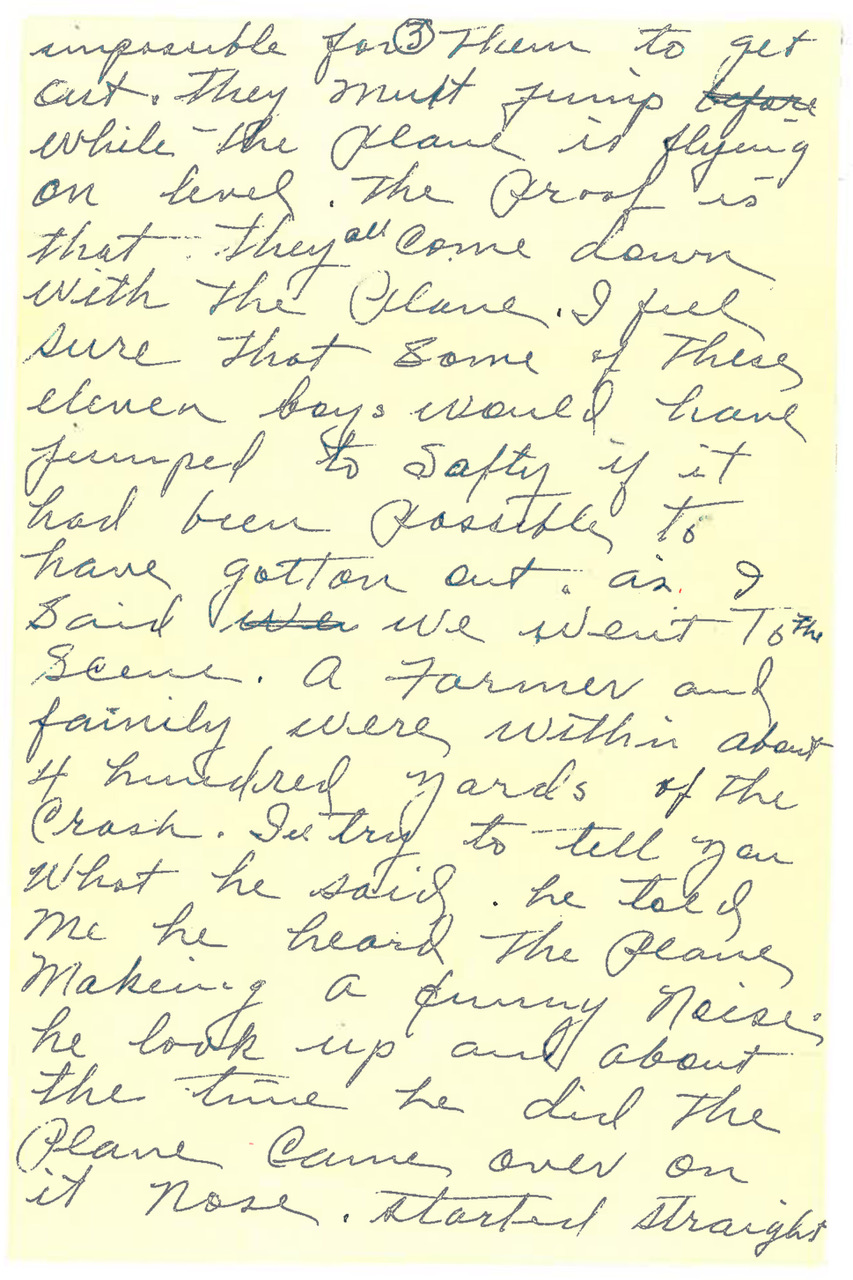 impossible for ③ them to get
out. they must jump before
while the plane is flying
on level. The proof is
that they all come down
with the plane. I feel
sure that some of these
eleven boys would have
jumped to safty if it
had been possible to
have gotton out. as I
said we we went to the
scene. A Farmer and
family were within about
4 hundred yards of the
Crash. I'll try to tell you
what he said. he told
me he heard the plane
makeing a funny noise.
he look up and about
the time he did the
plane came over on
it nose. started straight